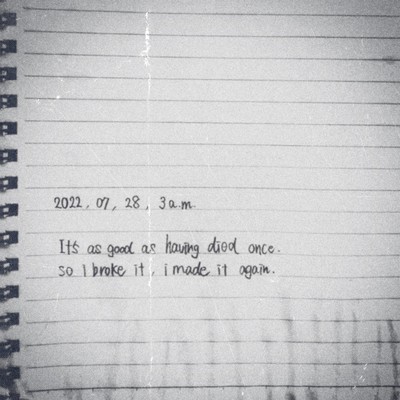 2022, 07, 28, 3 a.m.
It's as good as having died once.
so I broke it, i made it again.